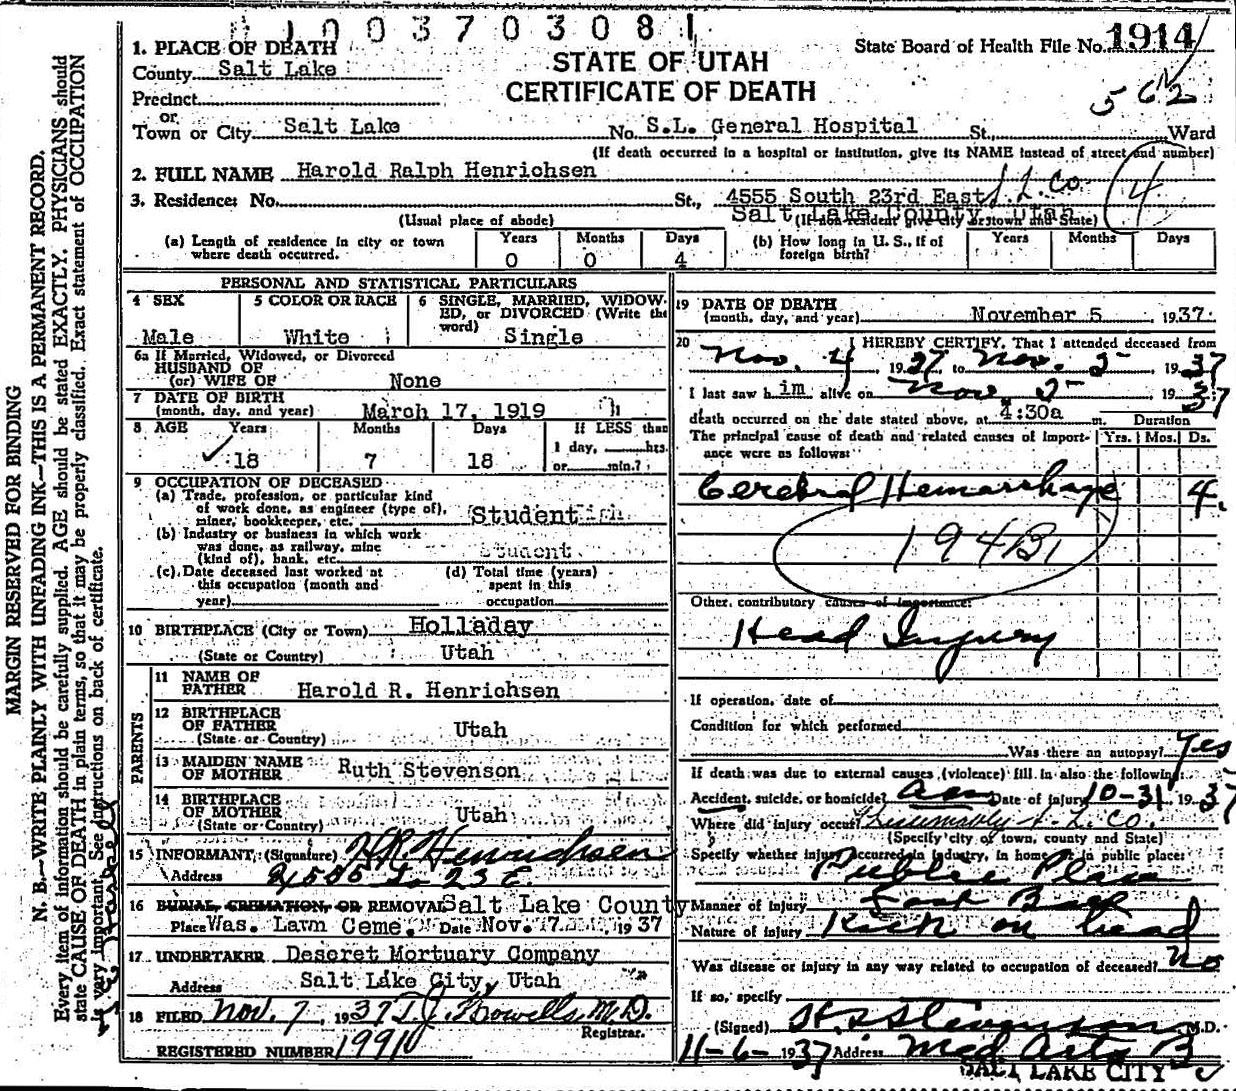 1003703081
State Board of Health File No. 1914
STATE OF UTAH
CERTIFICATE OF DEATH
562
1. PLACE OF DEATH
County Salt Lake
Precinct
or
Town or City Salt Lake No. S.L. General Hospital St. Ward
(If death occurred in a hospital or institution, give its NAME instead of street and number)
2. FULL NAME Harold Ralph Henrichsen
3. Residence: No. St., 4555 South 23rd East S.L. Co. 4
Salt Lake County, Utah
(Usual place of abode) (If non-resident give city or town and State)
(a) Length of residence in city or town where death occurred. Years 0 Months 0 Days 4
(b) How long in U. S., if of foreign birth? Years Months Days
PERSONAL AND STATISTICAL PARTICULARS
4 SEX Male
5 COLOR OR RACE White
6 SINGLE, MARRIED, WIDOWED, or DIVORCED (Write the word) Single
6a If Married, Widowed, or Divorced
HUSBAND OF
(or) WIFE OF None
7 DATE OF BIRTH
(month, day, and year) March 17, 1919
8 AGE Years 18 Months 7 Days 18 If LESS than 1 day, hrs. or min.?
9 OCCUPATION OF DECEASED
(a) Trade, profession, or particular kind
of work done, as engineer (type of),
miner, bookkeeper, etc. Student
(b) Industry or business in which work
was done, as railway, mine
(kind of), bank, etc. Student
(c) Date deceased last worked at
this occupation (month and
year)
(d) Total time (years)
spent in this
occupation
10 BIRTHPLACE (City or Town) Holladay
(State or Country) Utah
PARENTS
11 NAME OF
FATHER Harold R. Henrichsen
12 BIRTHPLACE
OF FATHER
(State or Country) Utah
13 MAIDEN NAME
OF MOTHER Ruth Stevenson
14 BIRTHPLACE
OF MOTHER
(State or Country) Utah
15 INFORMANT: (Signature) H.R. Henrichsen
Address 4555 So 23 E.
16 BURIAL, CREMATION, OR REMOVAL Salt Lake County
Place Was. Lawn Ceme. Date Nov. 7 1937
17 UNDERTAKER Deseret Mortuary Company
Address Salt Lake City, Utah
18 FILED Nov. 7, 1937 T.J. Howells, M.D.
Registrar.
REGISTERED NUMBER 1991
19 DATE OF DEATH
(month, day, and year) November 5 1937
20 I HEREBY CERTIFY, That I attended deceased from
Nov. 4 1937, to Nov. 5 1937
I last saw him alive on Nov 5 1937
death occurred on the date stated above, at 4:30a m.
Duration
The principal cause of death and related causes of importance were as follows: Yrs. Mos. Ds.
Cerebral Hemorrhage 4.
194B1
Other contributory causes of importance:
Head Injury
If operation, date of
Condition for which performed
Was there an autopsy? Yes
If death was due to external causes (violence) fill in also the following:
Accident, suicide, or homicide? Acc Date of injury 10-31 1937
Where did injury occur? Presumably S.L. Co.
(Specify city or town, county and State)
Specify whether injury occurred in industry, in home or in public place:
Public Place
Manner of Injury Foot Ball
Nature of injury Kick on head
Was disease or injury in any way related to occupation of deceased? No
If so, specify
(Signed) Stevenson M.D.
11-6-1937 Address Med Arts B
SALT LAKE CITY
MARGIN RESERVED FOR BINDING
N. B.—WRITE PLAINLY WITH UNFADING INK—THIS IS A PERMANENT RECORD.
Every item of information should be carefully supplied. AGE should be stated EXACTLY. PHYSICIANS should
state CAUSE OF DEATH in plain terms, so that it may be properly classified. Exact statement of OCCUPATION
is very important. See instructions on back of certificate.